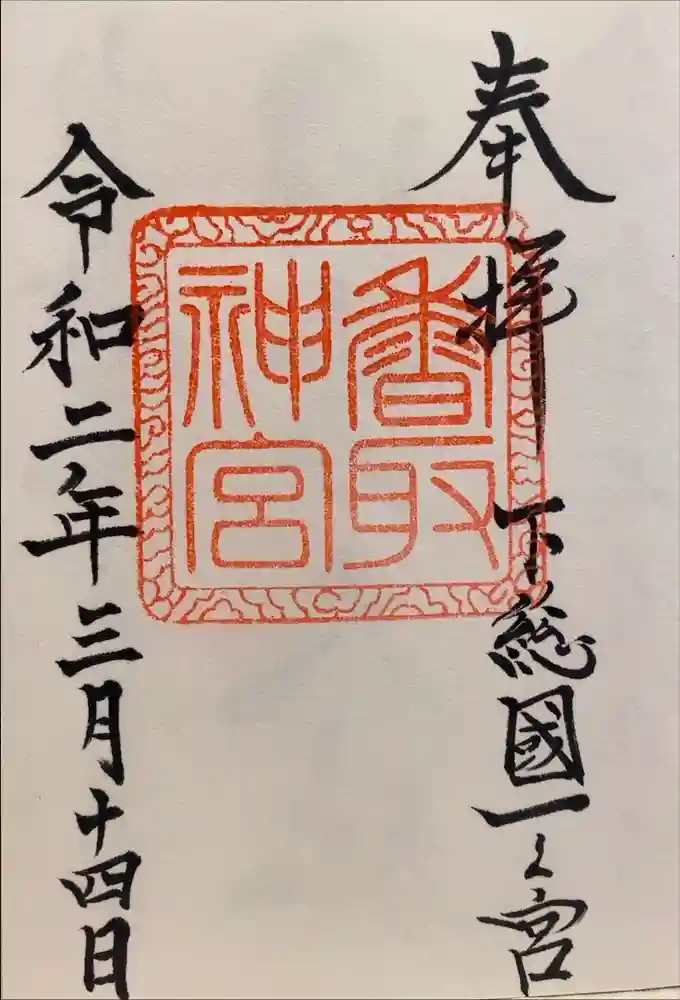 奉拝 下総國一之宮
香取
神宮
令和二年三月十四日